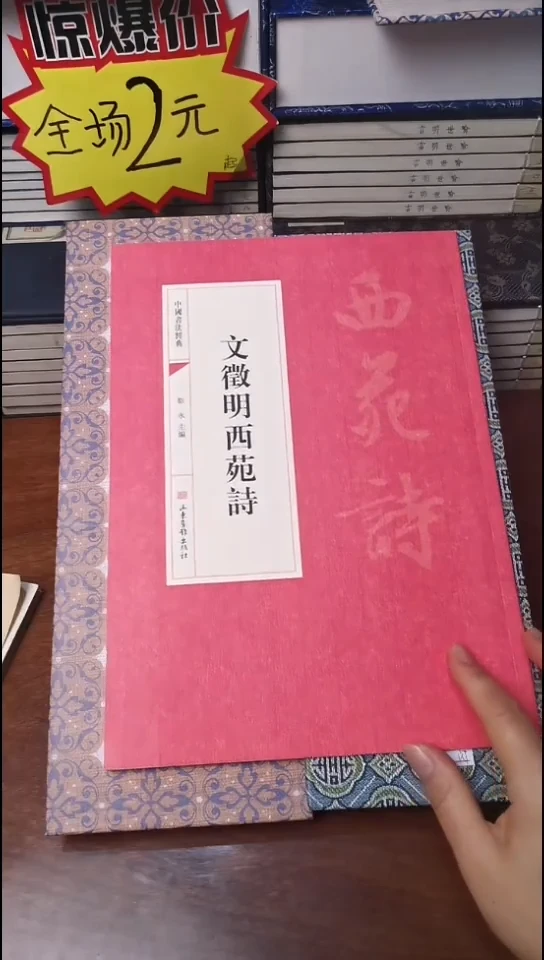 惊爆价
全场2元
起
中國書法經典
文徵明西苑詩
主編
山東畫報出版社
西苑詩